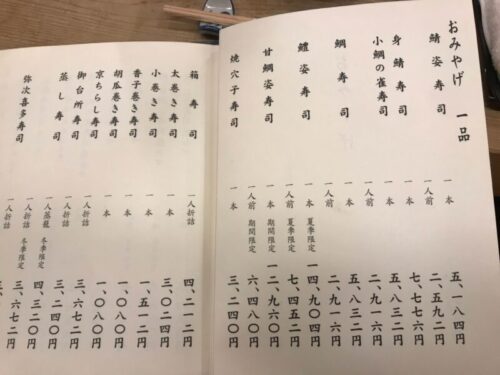 おみやげ 一品
鯖姿寿司 一本 五、一八四円
一人前 二、五九二円
身鯖寿司 一本 七、七七六円
小鯛の雀寿司 一本 五、八三二円
一人前 二、九一六円
鯛寿司 一本 五、八三二円
一人前 二、九一六円
鱧姿寿司 一本 夏季限定 一四、九〇四円
一人前 夏季限定 七、四五二円
甘鯛姿寿司 一本 期間限定 一二、九六〇円
一人前 期間限定 六、四八〇円
焼穴子寿司 一本 三、二四〇円
箱寿司 一人折詰 四、二一二円
太巻き寿司 一本 三、〇二四円
小巻き寿司 一本 一、五一二円
香子巻き寿司 一本 一、〇八〇円
胡瓜巻き寿司 一本 一、〇八〇円
京ちらし寿司 一人折詰 三、六七二円
御台所寿司 一人折詰
蒸し寿司 一人蒸籠 冬季限定 四、三二〇円
一人折詰 冬季限定 三、六七二円
弥次喜多寿司 一人折詰